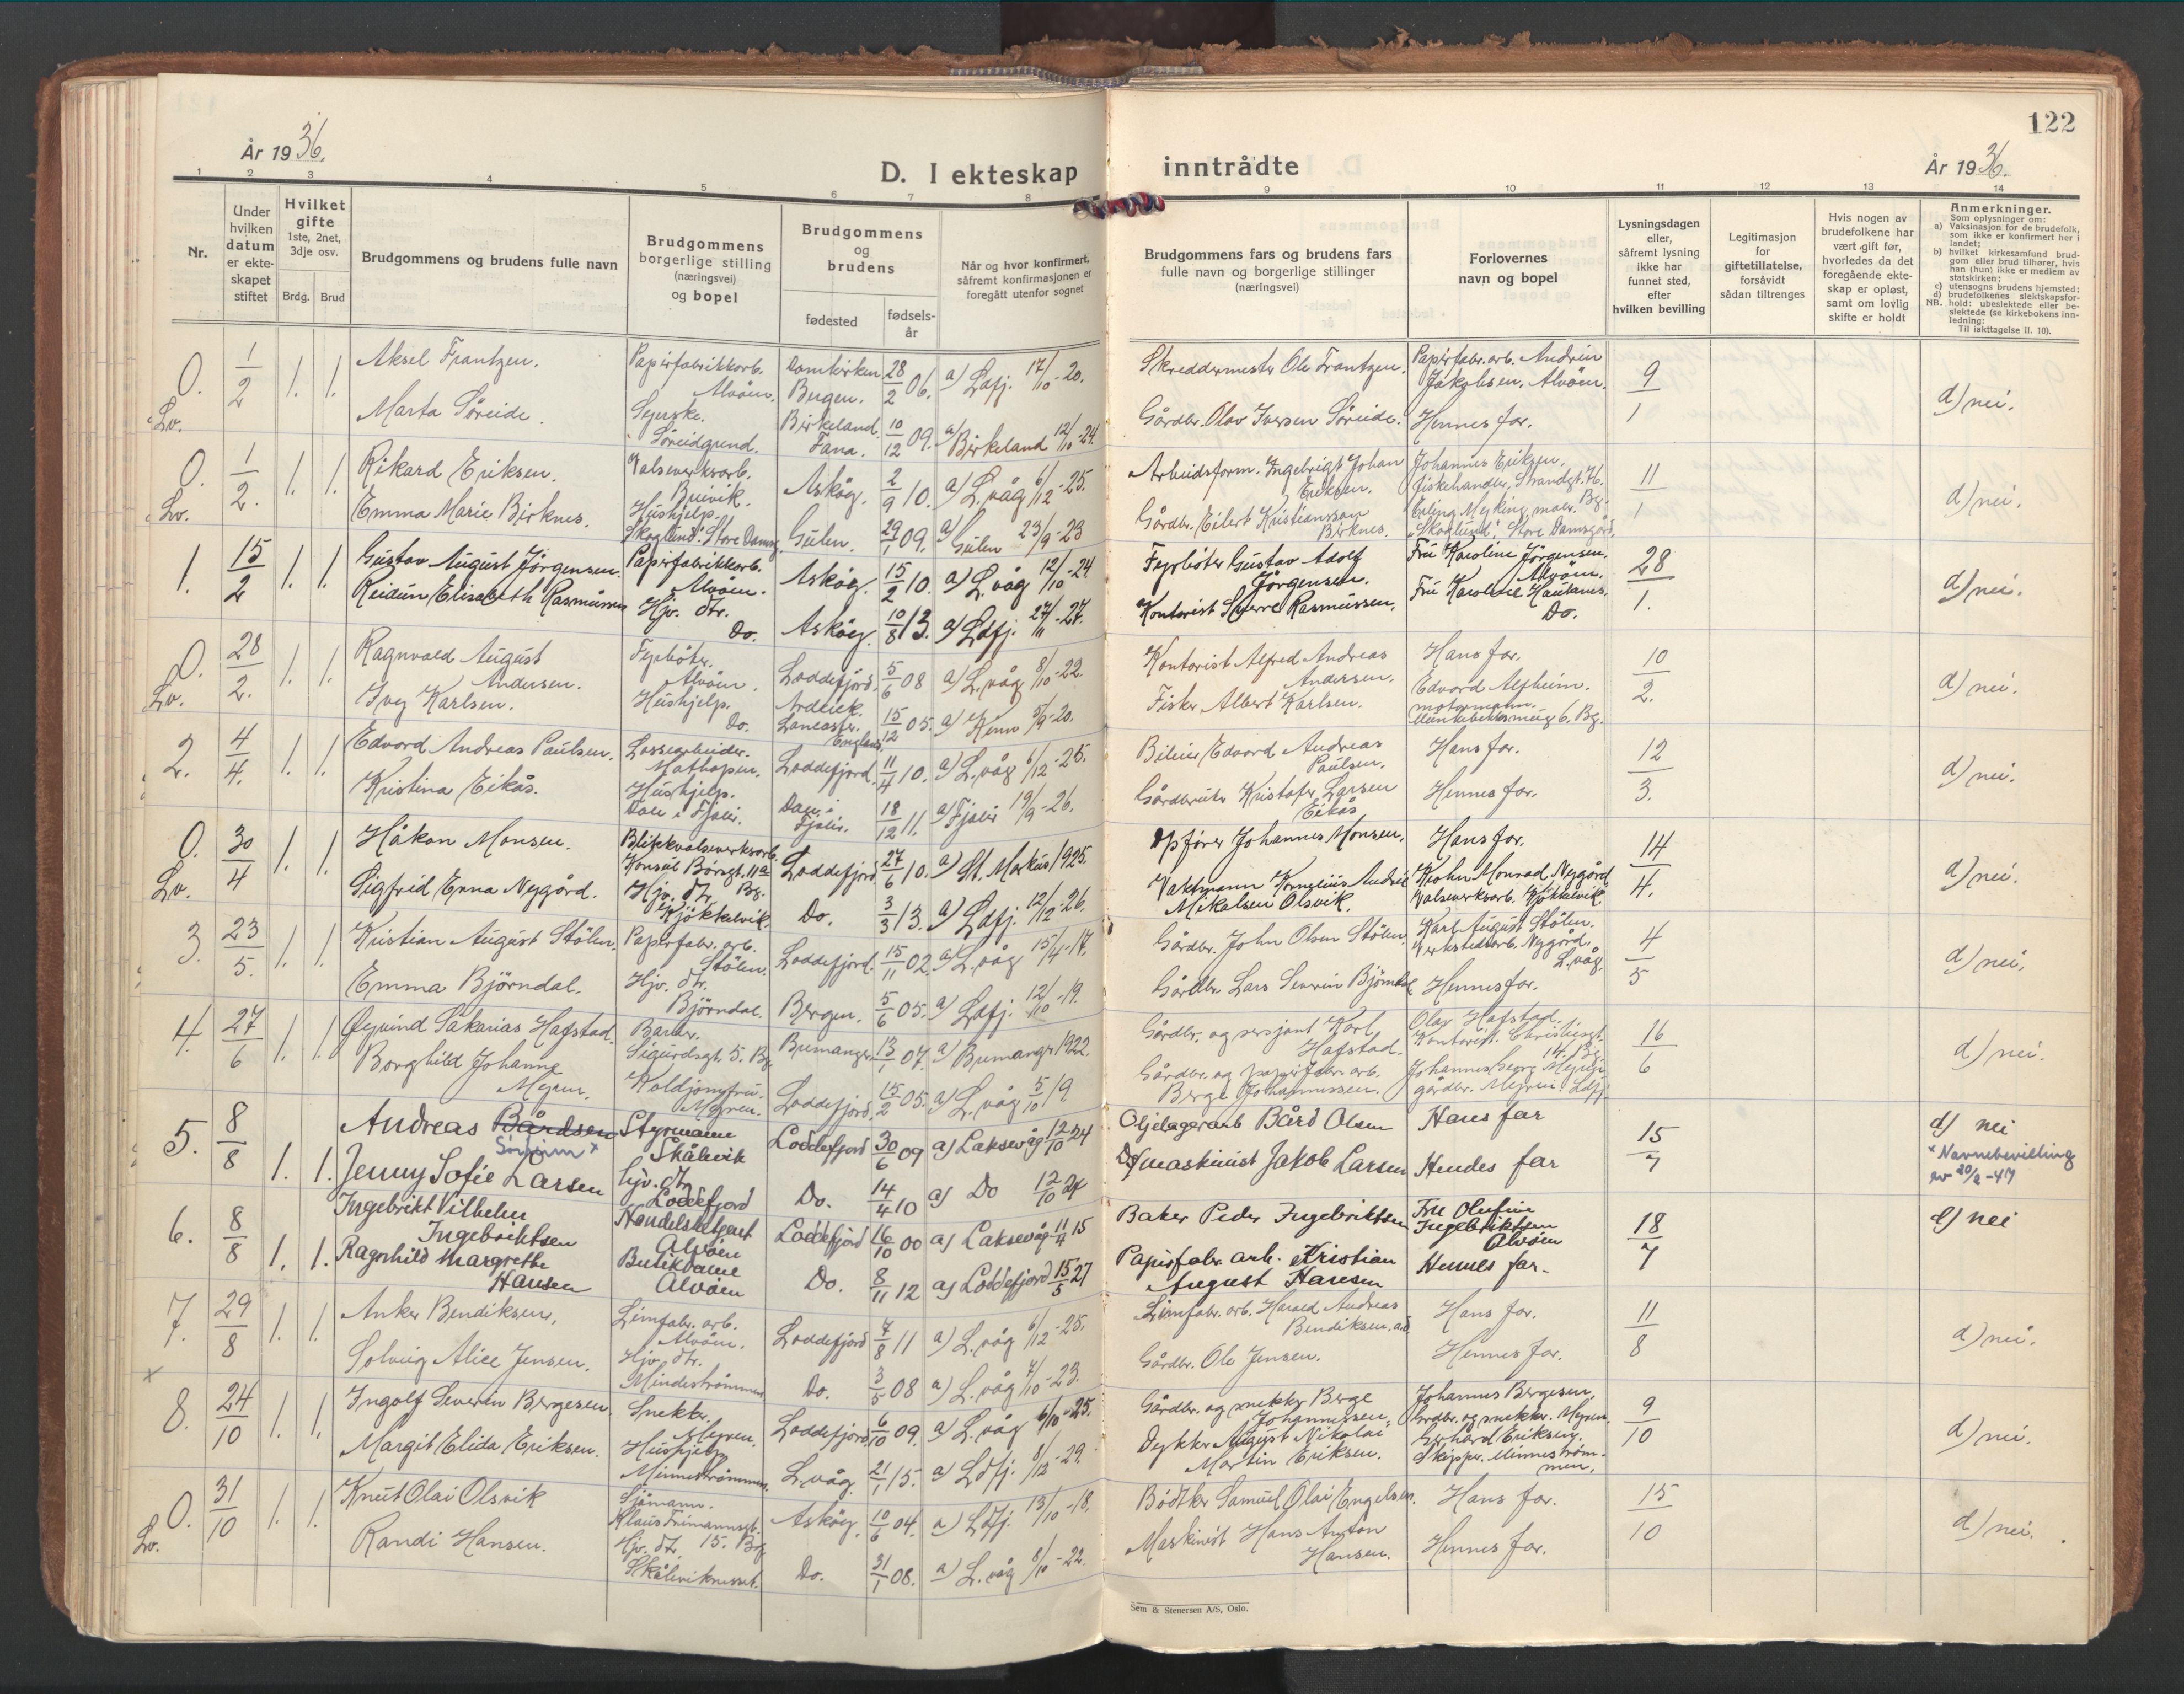 122
År 1936.
D. I ekteskap inntrådte
År 1936.
1 2 3 4 5 6 7 8 9 10 11 12 13 14
Nr.
Under hvilken datum er ekteskapet stiftet
Hvilket gifte
1ste, 2net, 3dje osv.
Brdg. Brud
Brudgommens og brudens fulle navn
Brudgommens borgerlige stilling (næringsvei) og bopel
Brudgommens og brudens
fødested
fødselsår
Når og hvor konfirmert, såfremt konfirmasjonen er foregått utenfor sognet
Brudgommens fars og brudens fars fulle navn og borgerlige stillinger (næringsvei)
Forlovernes navn og bopel
Lysningsdagen eller, såfremt lysning ikke har funnet sted, efter hvilken bevilling
Legitimasjon for giftetillatelse, forsåvidt sådan tiltrenges
Hvis nogen av brudefolkene har vært gift før, hvorledes da det foregående ekteskap er opløst, samt om lovlig skifte er holdt
Anmerkninger.
Som oplysninger om:
a) Vaksinasjon for de brudefolk, som ikke er konfirmert her i landet;
b) hvilket kirkesamfund brudgom eller brud tilhører, hvis han (hun) ikke er medlem av statskirken;
c) utensogns brudens hjemsted;
d) brudefolkenes slektskapsforhold: ubeslektede eller beslektede (se kirkebokens innledning:
NB. Til iakttagelse II. 10).
0. Lv. 1/2 1. 1. Aksel Frantzen. Papirfabrikkarb. Alvøen. Domkirken Bergen. 28/2 06. a) Ldfj. 17/10-20. Skreddermester Ole Frantzen. Papirfabr.arb. Andrein Jakobsen, Alvøen. 9/1 d) nei.
Marta Søreide. Syerske. Søreidgrend. Birkeland Fana. 10/12 09. a) Birkeland 12/10-24. Gårdbr. Olav Iversen Søreide. Hennes far.
0. Lv. 1/2. 1. 1. Rikard Eriksen. Valseverksarb. Breivik. Askøy. 2/9 10. a) L.våg 6/12-25. Arbeidsform. Ingebrigt Johan Eriksen. Johannes Eriksen, fiskehandler, Strandgt. 76. Bg. 11/1 d) nei.
Emma Marie Birknes. Hushjelp. Skoglund. Store Damsg. Gulen. 29/1 09. a) Gulen 23/9-23 Gårdbr. Eilert Kristiansson Birknes. Erling Myking, maler. "Skoglund", Store Damsgård.
1. 15/2 1. 1. Gustav August Jörgensen. Papirfabrikkarb. Alvøen. Askøy. 15/2 10. a) L.våg 12/10-24. Fyrbøter Gustav Adolf Jörgensen. Fru Karoline Jörgensen. Alvøen. 28/1. d) nei.
Reidun Elisabeth Rasmussen Hjv. dtr. Do. Askøy. 10/8 13. a) Ldfj. 27/11-27. Kontorist Sverre Rasmussen. Fru Karoline Haukanes. Do.
0. Lv. 28/2. 1. 1. Ragnvald August Andersen. Fyrbøter. Alvøen. Loddefjord. 5/6 08 a) L.våg 8/10-22. Kontorist Alfred Andreas Andersen. Hans far. 10/2. d) nei.
Ivy Karlsen. Hushjelp. Do. Ardeick. Lancaster. England. 15/12 05. a) Kinn 5/9-20. Fisker Albert Karlsen. Edvard Alfheim. motormann. Munkebotsmug 6. Bg.
2. 4/4. 1. 1. Edvard Andreas Paulsen. Lossearbeider. Mathopen. Loddefjord. 11/4 10. a) L.våg 6/12-25. Bileier Edvard Andreas Paulsen. Hans far. 12/3. d) nei.
Kristina Eikås. Hushjelp. Dale i Fjaler. Dale i Fjaler. 18/12 11. a) Fjaler 19/9-26. Gårdbruker Kristofer Larsen Eikås Hennes far.
0. Lv. 30/4 1. 1. Håkon Monsen. Blikkvalseverksarb. Konsul Børsgt. 11a Bg. Loddefjord 27/6 10. a) St. Markus 1925. Dpfører Johannes Monsen. Hans far. 14/4. d) nei.
Sigfrid Enna Nygård. Hjv. dtr. Kjøkkelvik. Do. 3/3 13. a) Ldfj. 12/12-26. Vaktmann Kornelius Andreas Mikalsen Olsvik. Krohn Monrad Nygård Valseverksarb. Kjøkkelvik.
3. 23/5. 1. 1. Kristian August Stölen. Papirfabr. arb. Stölen. Loddefjord. 15/11 02. a) L.våg 15/4-17. Gårdbr. John Olsen Stölen. Karl August Stölen. Verkstedsarb. Nygård. L.våg. 4/5 d) nei.
Emma Björndal. Hjv. dtr. Björndal. Bergen. 5/6 05. a) Ldfj. 12/10-19. Gårdbr. Lars Severin Björndal. Hennes far.
4. 27/6 1. 1. Øyvind Sakarias Hafstad. Barber. Sigurdsgt. 5. Bg. Bremanger 13/1 07. a) Bremanger 1922. Gårdbr. og sersjant Karl Hafstad. Olav Hafstad. Kontorist. Christiesgt. 14. Bg. 16/6 d) nei.
Borghild Johanne Myren. Koldjomfru. Myren. Loddefjord. 15/2 05. a) L.våg 5/10 19. Gårdbr. og papirfabr. arb. Berge Johannessen. Johannes Georg Myren gårdbr. Myren. Ldfj.
5. 8/8 1. 1. Andreas Bårdsen Styrmann Skålevik Loddefjord 30/6 09 a) Laksevåg 12/10 24 Oljelagerarb Bård Olsen Hans far 15/7 d) nei
x Navnebevilling av 20/2-47
Jenny Sofie Larsen Hjv. dtr. Loddefjord Do. 14/4 10 a) Do 12/10 24 Dfmaskinist Jakob Larsen Hendes far
6. 8/8 1. 1. Ingebrikt Vilhelm Ingebriktsen Handelsbetjent Alvøen Loddefjord 16/10 00 a) Laksevåg 11/4 15 Baker Peder Ingebriktsen Fru Olufine Ingebriktsen Alvøen 18/7 d) nei
Ragnhild Margrethe Hansen Butikdame Alvøen Do. 8/11 12 a) Loddefjord 15/5 27 Papirfabr. arb. Kristian August Hansen Hennes far.
7. 29/8 1. 1. Anker Bendiksen. Limfabr. arb. Alvøen. Loddefjord 7/8 11 a) L.våg 6/12-25. Limfabr. arb. Harald Andreas Bendiksen. Hans far. 11/8 d) nei.
x Solveig Alice Jensen. Hjv. dtr. Mindeströmmen Do. 3/5 08 a) L.våg 7/10-23. Gårdbr. Ole Jensen. Hennes far.
8. 24/10 1. 1. Ingolf Severin Bergesen. Snekker. Myren. Loddefjord. 6/10 09. a) L.våg 6/10-25. Gårdbr. og snekker Berge Johannessen. Johannes Bergesen, Grdbr. og snekker. Myren. 9/10 d) nei.
Margit Elida Eriksen. Hushjelp Minneströmmen. L.våg. 21/1 15. a) Ldfj. 8/12-29. Dykker August Nikolai Martin Eriksen. Gerhard Eriksen. Skipper. Minneströmmen.
0. Lv. 31/10 1. 1. Knut Olai Olsvik Sjömann. Klaus Frimannsgt. 15. Bg Askøy. 10/6 04. a) Ldfj. 13/10-18. Bødker Samuel Olai Engelsen. Hans far. 15/10 d) nei.
Randi Hansen. Hjv. dtr. Skåleviknesset. Do. 31/1 08. a) L.våg 8/10-22. Maskinist Hans Anton Hansen. Hennes far.
Sem & Stenersen A/S, Oslo.